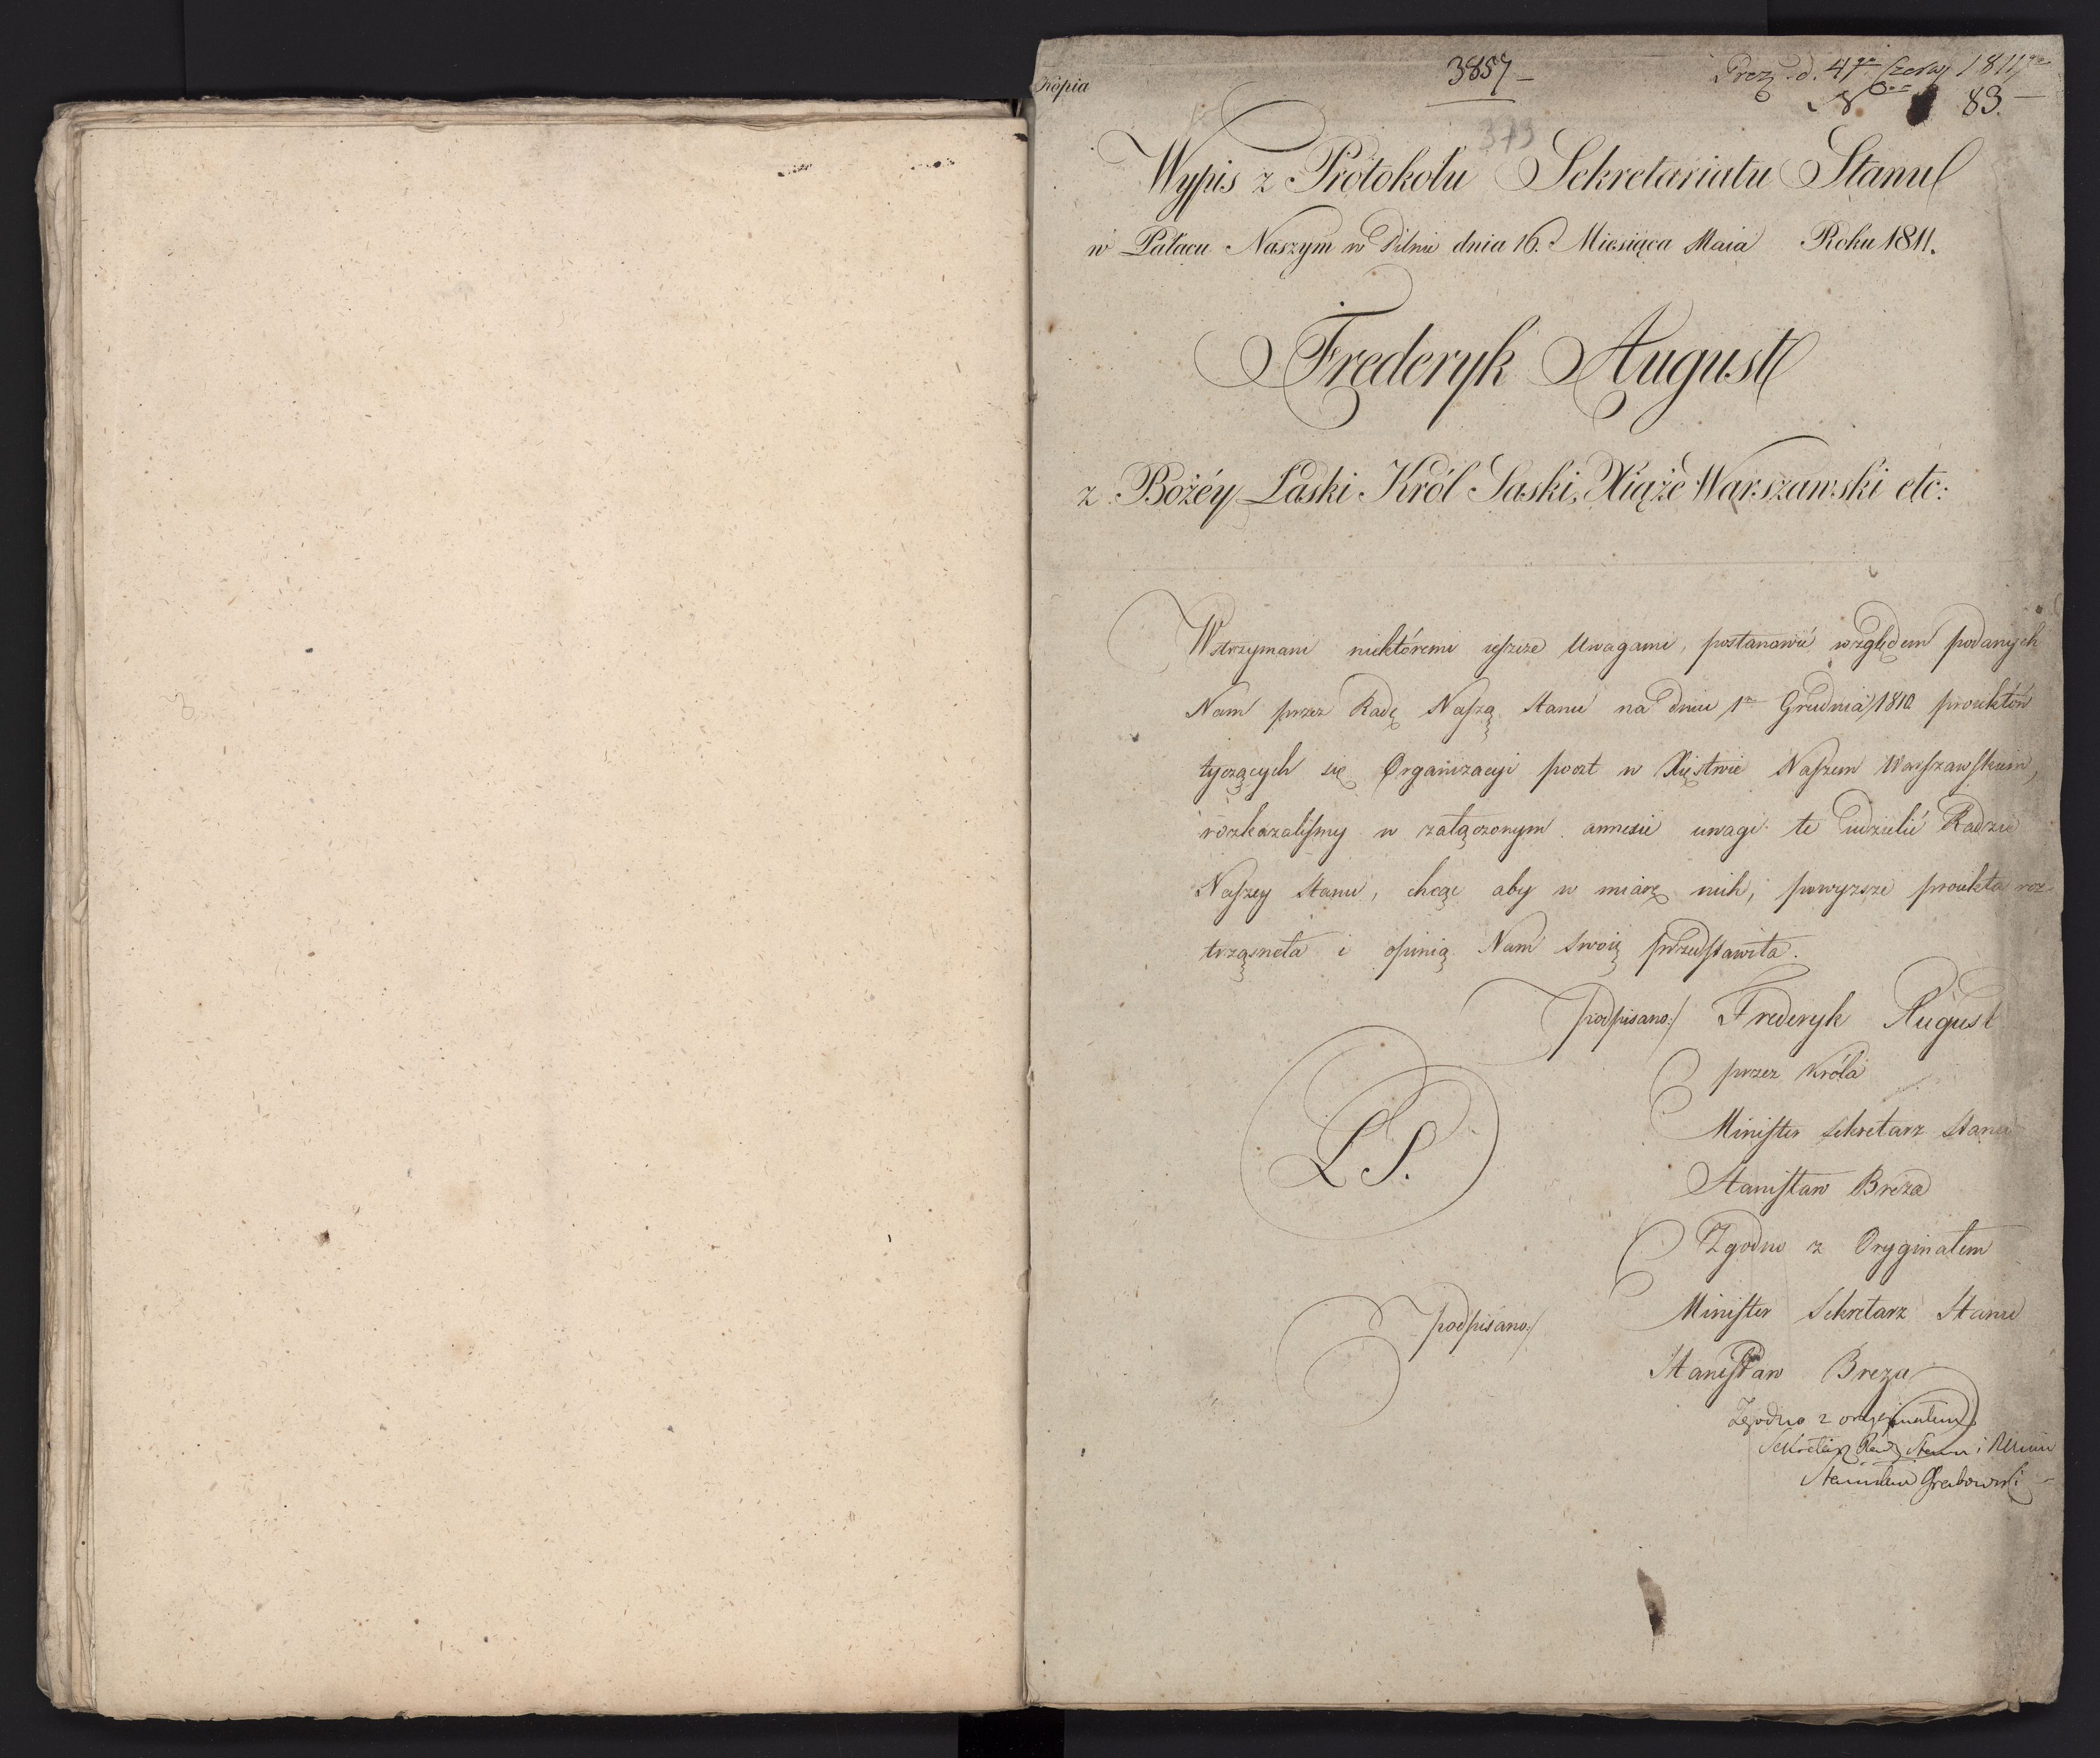 Kopia
3857 –
Prez. d. 4go Czerw 1811go
83. –
373
Wypis z Protokołu Sekretariatu Stanu
w Pałacu Naszym w Pilnie dnia 16. Miesiąca Maia Roku 1811.
Frederyk August
z Bożéy Łaski Król Saski, Xiąże Warszawski etc:
Wstrzymani niektóremi ieszcze Uwagami, postanowić względem podanych
Nam przez Radę Naszą Stanu na dniu 1m Grudnia 1810 proiektów
tyczących się Organizacyi poczt w Xięstwie Naszem Warszawskiem,
rozkazaliśmy w załączonym annexie uwagi te udzielić Radzie
Naszey Stanu, chcąc aby w miarę nich, powyższe proiekta roz-
trząsneła i opinią Nam swoię przedstawiła.
podpisano:/ Frederyk August
przez Króla
Minister Sekretarz Stanu
L S.
Stanisław Breza
Zgodno z Oryginałem
podpisano:/ Minister Sekretarz Stanu
Stanisław Breza
Zgodno z oryginałem
Sekretarz Rady Stanu i Minis
Stanisław Grabowski